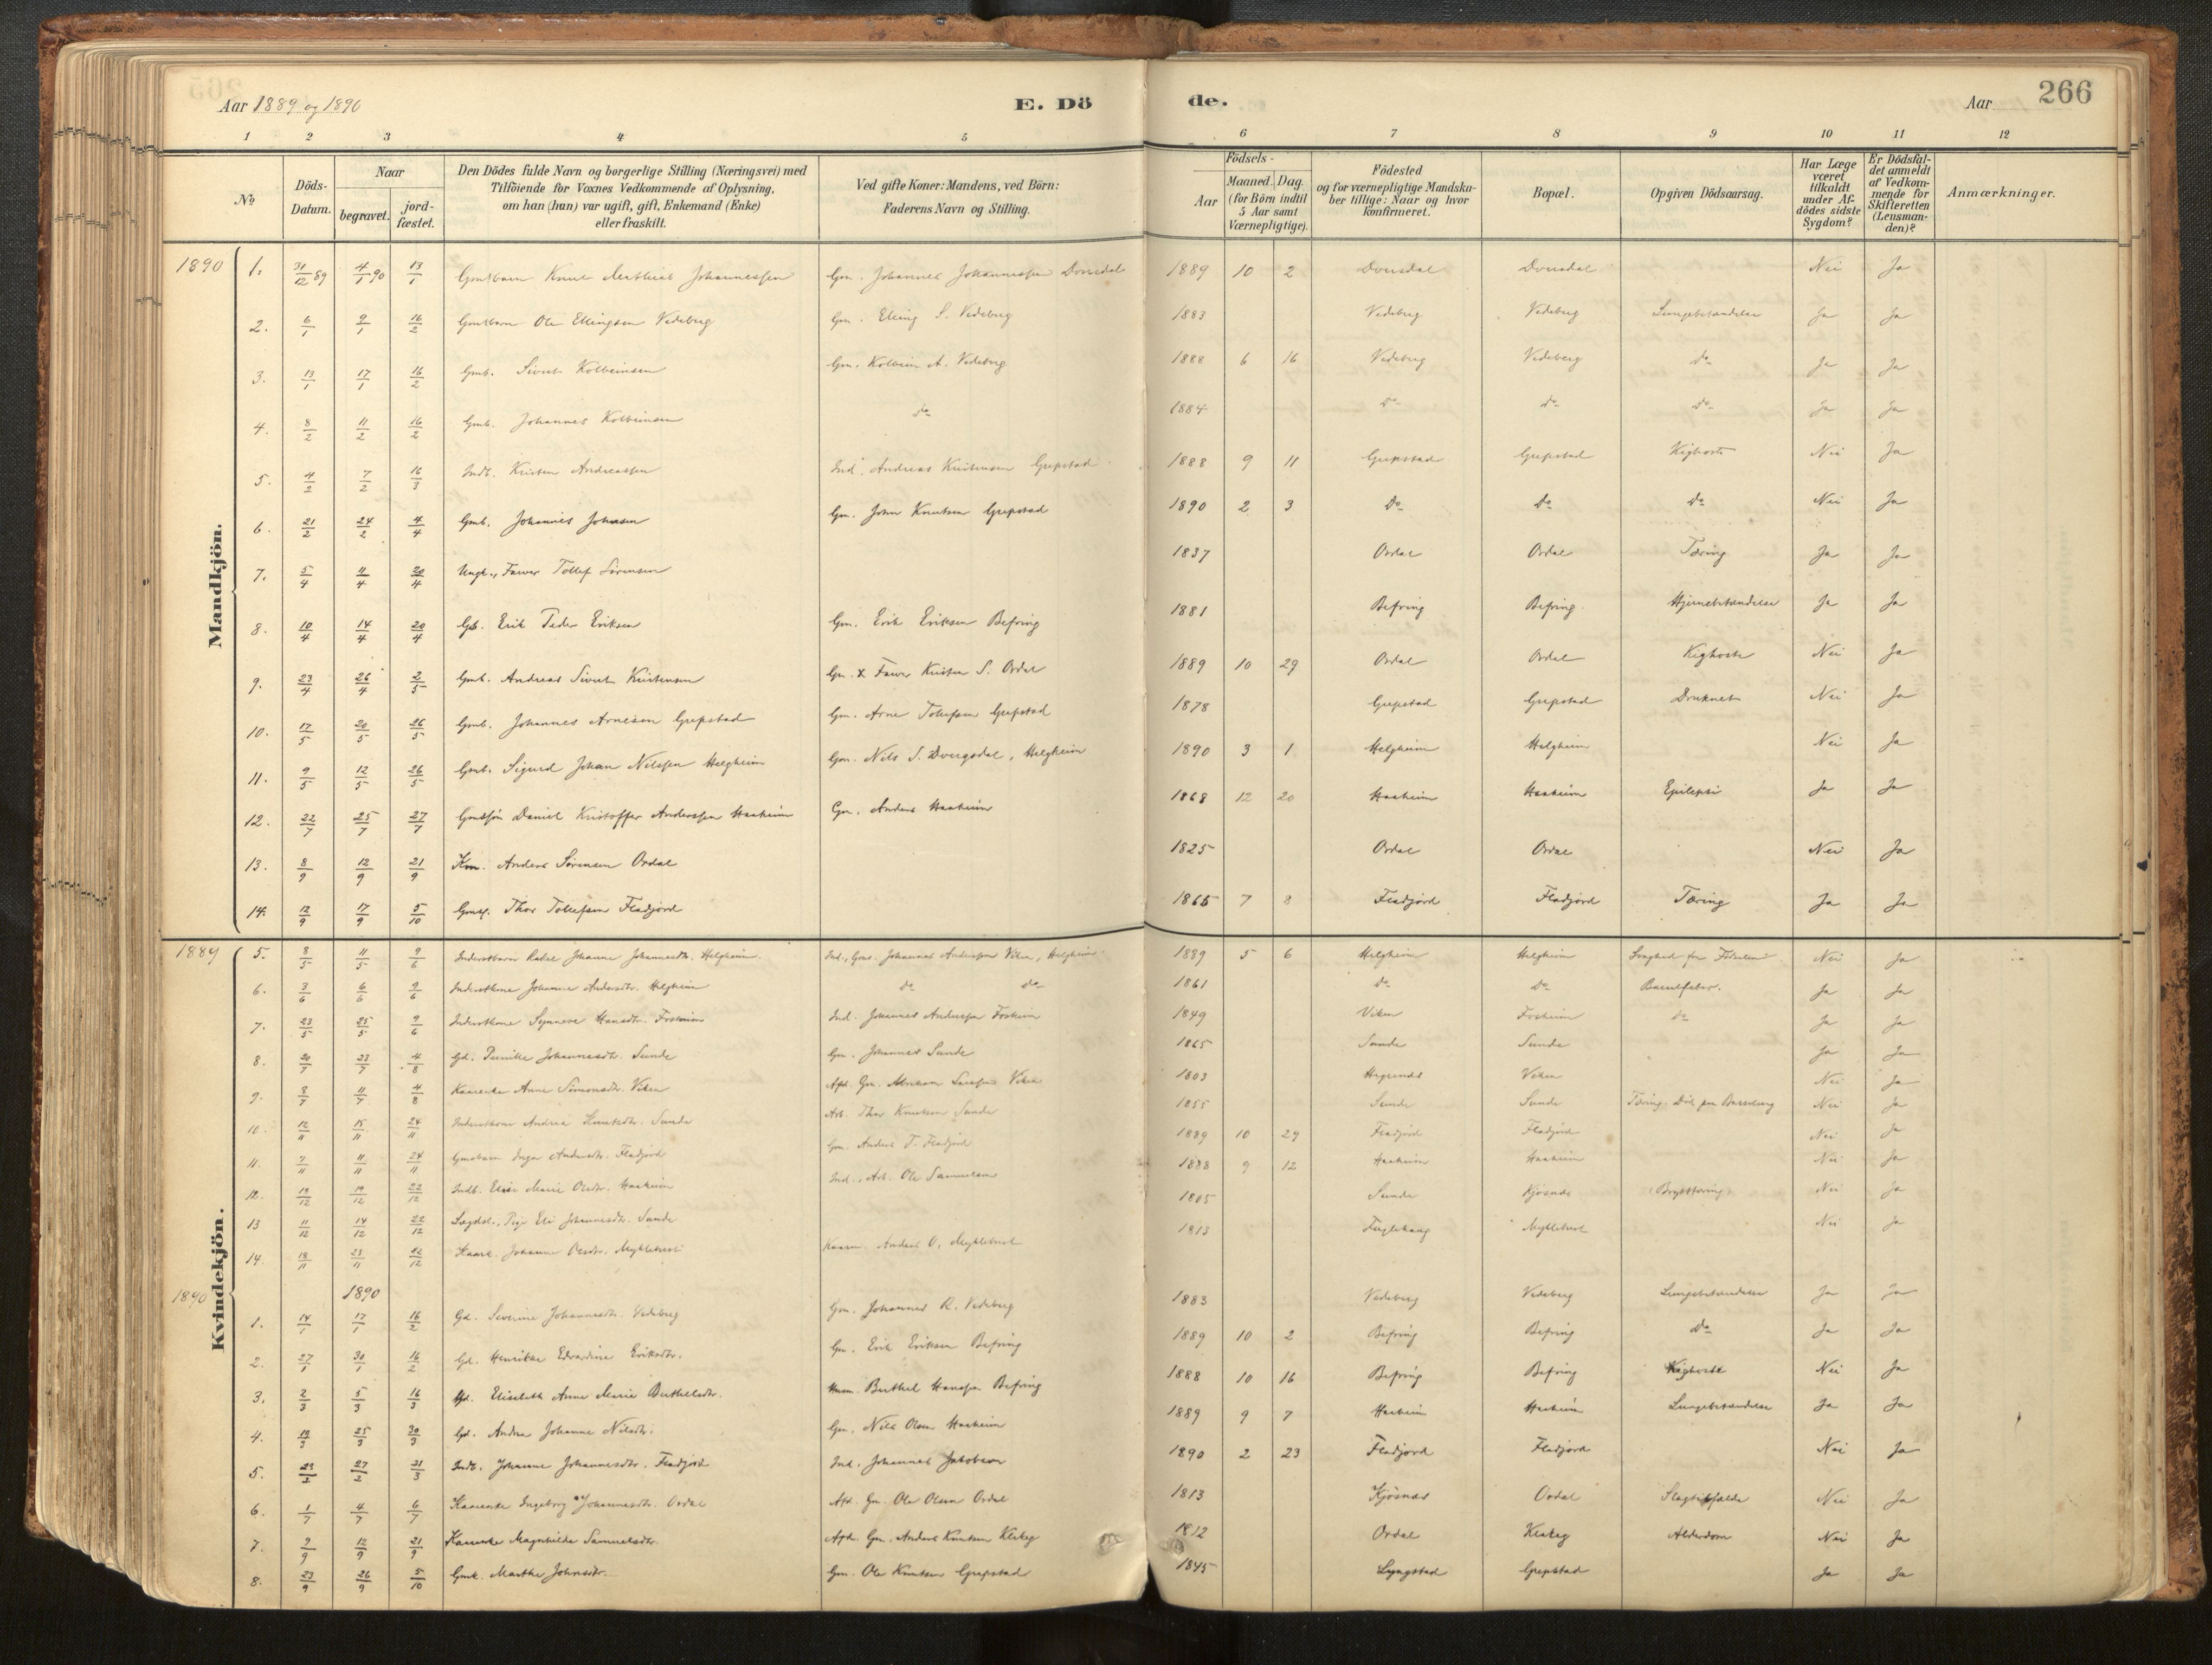 266
Aar 1889 og 1890 E. Dö de. Aar
1 2 3 4 5 6 7 8 9 10 11 12
No Döds-Datum. Naar begravet. jord-fæstet. Den Dödes fulde Navn og borgerlige Stilling (Næringsvei) med Tilföiende for Voxnes Vedkommende af Oplysning, om han (hun) var ugift, gift, Enkemand (Enke) eller fraskilt. Ved gifte Koner: Mandens, ved Börn: Faderens Navn og Stilling. Födsels- Aar Maaned. Dag. (for Börn indtil 5 Aar samt Værnepligtige). Födested og for værnepligtige Mandska-ber tillige: Naar og hvor konfirmeret. Bopæl. Opgiven Dödsaarsag. Har Læge været tilkaldt under Af-dödes sidste Sygdom? Er Dödsfal-det anmeldt af Vedkom-mende for Skifteretten (Lensman-den)? Anmærkninger.
Mandkjön.
1890 1. 31/12 89 4/1 90 13/1 Gmdbarn Knut Mathias Johannessen Gm. Johannes Johannessen Dvergsdal 1889 10 2 Dvergsdal Dvergsdal Nei Ja
2. 6/1 9/1 16/2 Gmdbarn Ole Ellingsen Vedeberg Gm. Elling S. Vedeberg 1883 Vedeberg Vedeberg Lungebetændelse Ja Ja
3. 13/1 17/1 16/2 Gmb. Sivert Kolbeinsen Gm. Kolbein A. Vedeberg 1888 6 16 Vedeberg Vedeberg do Ja Ja
4. 8/2 11/2 16/2 Gmb. Johannes Kolbeinsen do 1884 do do do Ja Ja
5. 4/2 7/2 16/3 Indb. Kristen Andreassen Ind. Andreas Kristensen Grepstad 1888 9 11 Grepstad Grepstad Kighoste Nei Ja
6. 21/2 24/2 4/4 Gmb. Johannes Johnsen Gm. John Knutsen Grepstad 1890 2 3 Do Do Do Nei Ja
7. 5/4 11/4 20/4 Ungk., Farver Tollef Sørensen 1837 Ordal Ordal Tæring Ja Ja
8. 10/4 14/4 20/4 Gb. Erik Peder Eriksen Gm. Erik Eriksen Befring 1881 Befring Befring Hjernebetændelse Ja Ja
9. 23/4 26/4 2/5 Gmb. Andreas Sivert Kristensen Gm. & Farver Kristen S. Ordal 1889 10 29 Ordal Ordal Kighoste Nei Ja
10. 17/5 20/5 26/5 Gmb. Johannes Arnesen Grepstad Gm. Arne Tollefsen Grepstad 1878 Grepstad Grepstad Druknet Nei Ja
11. 9/5 12/5 26/5 Gmb. Sigurd Johan Nilssen Helgheim Gm. Nils S. Dvergsdal, Helgheim 1890 3 1 Helgheim Helgheim Nei Ja
12. 22/7 25/7 27/7 Gmdsøn Daniel Kristoffer Anderssen Haaheim Gm. Anders Haaheim 1868 12 20 Haaheim Haaheim Epilepsi Ja Ja
13. 8/9 12/9 21/9 Km. Anders Sørensen Ordal 1825 Ordal Ordal Nei Ja
14. 12/9 17/9 5/10 Gmsø. Thor Tollefsen Fladjord 1865 7 8 Fladjord Fladjord Tæring Ja Ja
Kvindekjön.
1889 5. 8/5 11/5 9/6 Inderstbarn Rakel Johanne Johannesdtr. Helgheim. Ind., Gms. Johannes Anderssen Viken, Helgheim 1889 5 6 Helgheim Helgheim Svaghed fra Fødselen Nei Ja
6. 3/6 6/6 9/6 Inderstkone Johanne Andersdtr. Helgheim do do 1861 do do Barselfeber. Ja Ja
7. 23/5 25/5 9/6 Inderstkone Synneve Hansdtr. Fosheim Ind. Johannes Anderssen Fosheim 1849 Viken Fosheim do Ja Ja
8. 20/7 23/7 4/8 Gd. Pernille Johannesdtr. Sunde Gm. Johannes Sunde 1865 Sunde Sunde Ja Ja
9. 8/7 11/7 4/8 Kaarenke Anne Simonsdtr. Viken Afd. Gm. Abraham Viken 1803 Viken Nei Ja
10. 12/11 15/11 24/11 Inderstkone Andrea Knutsdtr. Sunde Arb. Thor Knutsen Sunde 1855 Sunde Sunde Tæring. Død paa Barselseng Nei Ja
11. 7/11 11/11 24/11 Gmdbarn Inga Andersdtr. Fladjord Gm. Anders T. Fladjord 1889 10 29 Fladjord Fladjord Nei Ja
12. 19/12 22/12 Indb. Marie Olsdtr. Haaheim Ind., Arb. Ole Samuelsen 1888 9 12 Haaheim Haaheim Nei Ja
13 11/12 14/12 22/12 Lægdsl., Pige Eli Johannesdtr. Sunde 1805 Sunde Kjøsnes Brysttæring Nei Ja
14. 18/11 23/11 22/12 Kaark. Johanne Olsdtr. Myklebust Kaarm. Anders O. Myklebust 1813 Fuglehaug Myklebust Nei Ja
1890 1890
1. 14/1 17/1 16/2 Gd. Severine Johannesdtr. Vedeberg Gm. Johannes R. Vedeberg 1883 Vedeberg Vedeberg Lungebetændelse Ja Ja
2. 27/1 30/1 16/2 Gd. Henrikke Edvardine Eriksdtr. Gm. Erik Eriksen Befring 1889 10 2 Befring Befring do Ja Ja
3. 2/3 5/3 16/3 Gd. Elisabeth Anne Marie Berthelsdtr. Husm. Berthel Hanssen Befring 1888 10 16 Befring Befring Kighoste Nei Ja
4. 19/3 25/3 30/3 Gd. Andrea Johanne Nilsdtr. Gm. Nils Olsen Haaheim 1889 9 7 Haaheim Haaheim Lungebetændelse Ja Ja
5. 23/2 27/2 21/3 Indb. Johanne Johannesdtr. Fladjord Ind. Johannes Jakobsen 1890 2 23 Fladjord Fladjord Nei Ja
6. 1/7 4/7 6/7 Kaarenke Ingeborg Johannesdtr. Ordal Afd. Gm. Ole Olsen Ordal 1813 Kjøsnes Ordal Slagtilfælde Nei Ja
7. 9/9 12/9 21/9 Kaarenke Magnhilde Samuelsdtr. Afd. Gm. Anders Knutsen Klakeg 1812 Ordal Klakeg Alderdom Nei Ja
8. 23/9 26/9 5/10 Gmk. Marthe Johnsdtr. Gm. Ole Knutsen Grepstad 1845 Lyngstad Grepstad Ja Ja